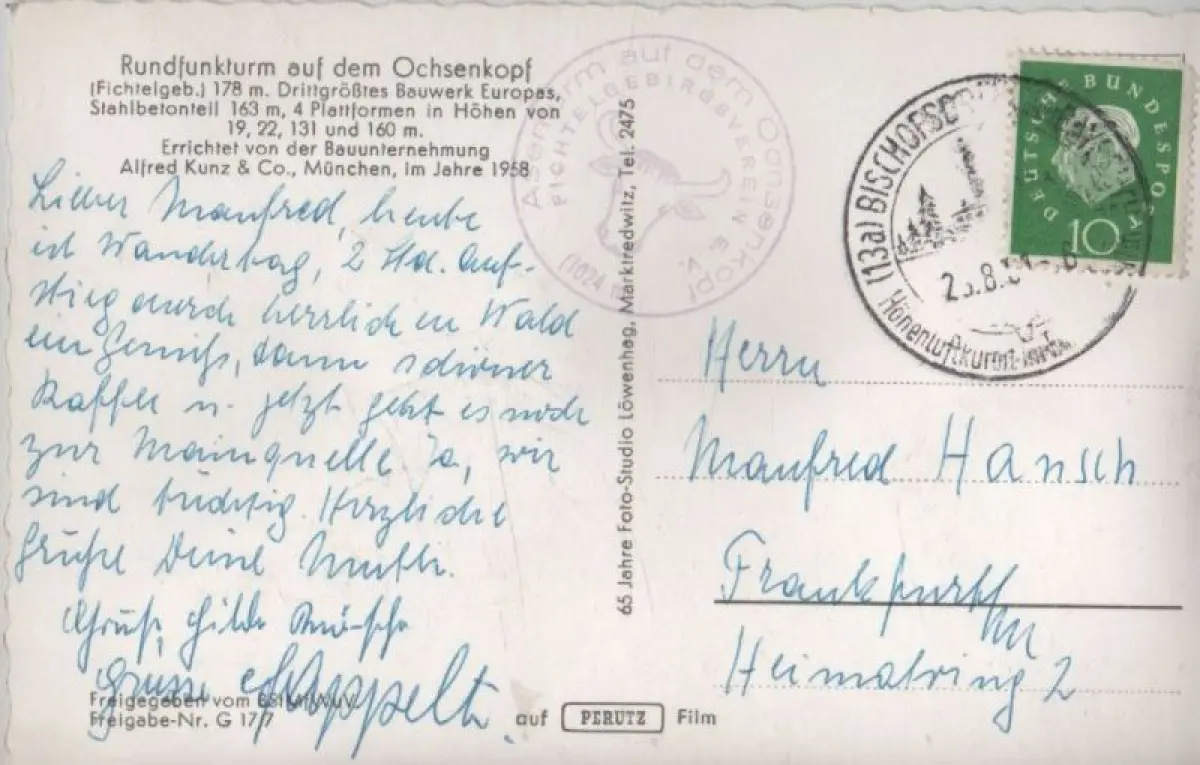 Rundfunkturm auf dem Ochsenkopf
(Fichtelgeb.) 178 m. Drittgrößtes Bauwerk Europas,
Stahlbetonteil 163 m, 4 Plattformen in Höhen von
19, 22, 131 und 160 m.
Errichtet von der Bauunternehmung
Alfred Kunz & Co., München, im Jahre 1958
Lieber Manfred, heute
ist Wandertag, 2 Std. Auf-
stieg durch herrlichen Wald
ein Genuß, dann schöner
Kaffee u. jetzt geht es noch
zur Mainquelle. Ja, wir
sind tüchtig. Herzliche
Grüße Deine Mutti.
Gruß, Hilde
Freigegeben vom
Freigabe-Nr. G 17/7
auf PERUTZ Film
65 Jahre Foto-Studio Löwenhag, Marktredwitz, Tel. 2475
Asenturm auf dem Ochsenkopf
FICHTELGEBIRGSVEREIN E. V.
(1024 m)
(13a) BISCHOFSGRÜN
Höhenluftkurort
DEUTSCHE BUNDESPOST
10
Herrn
Manfred Hansch
Frankfurt/M
Heimatring 2